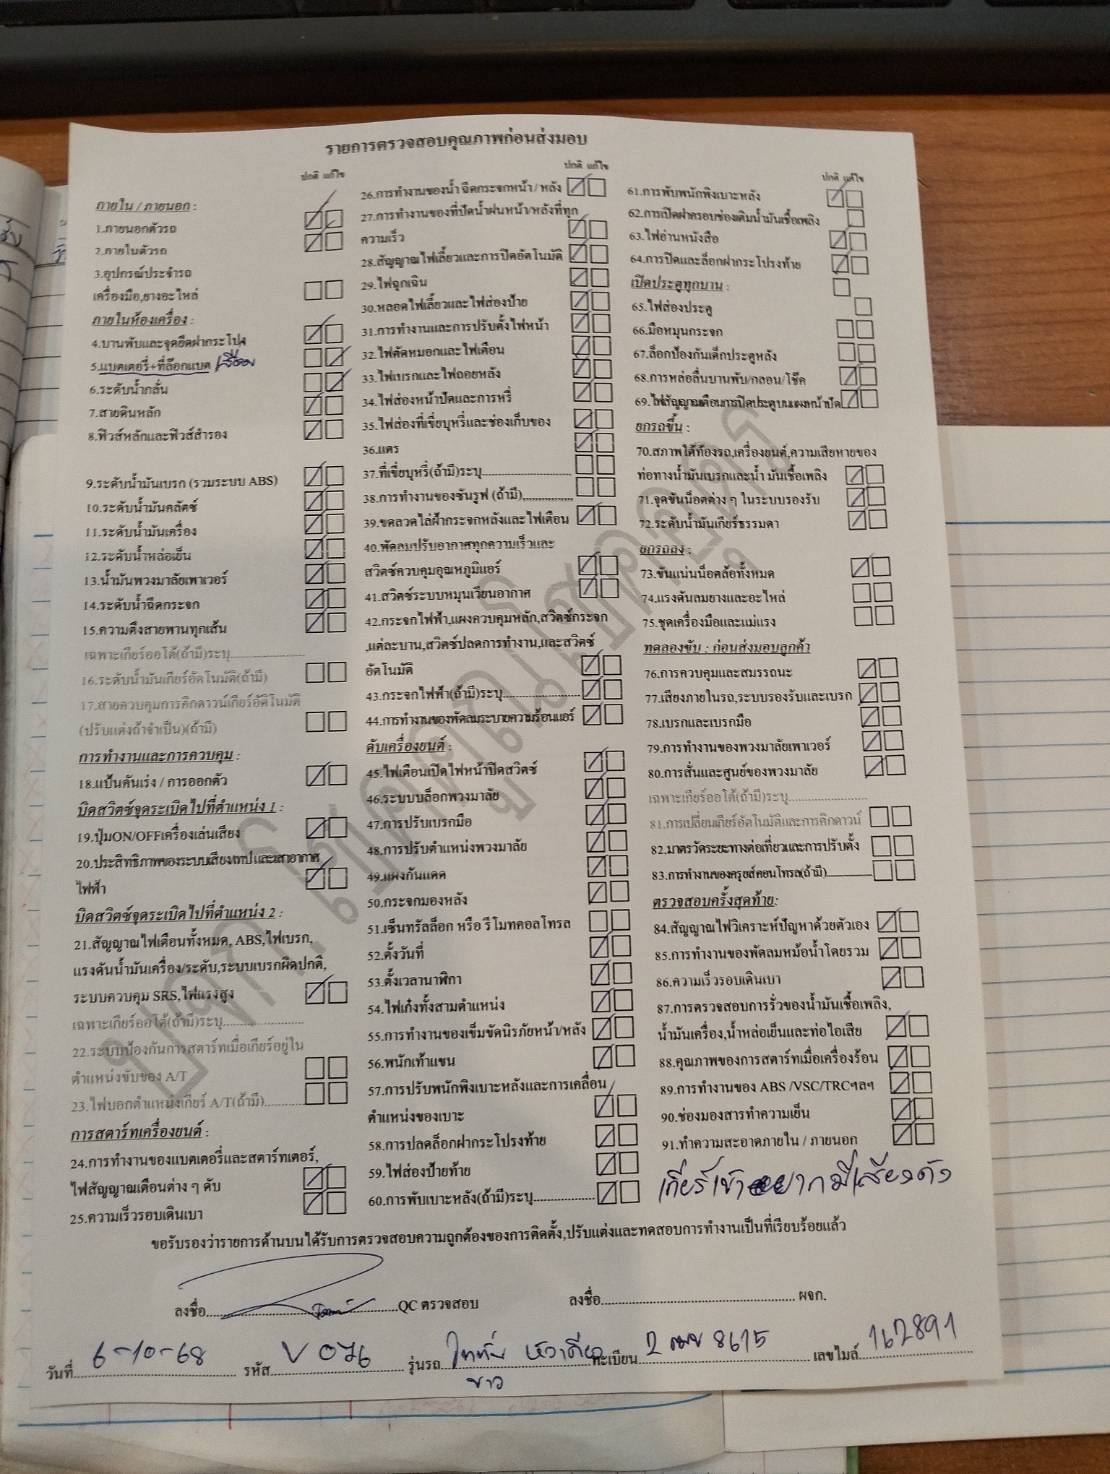 รายการตรวจสอบคุณภาพก่อนส่งมอบ
ปกติ แก้ไข
ภายใน / ภายนอก :
1.ภายนอกตัวรถ
2.ภายในตัวรถ
3.อุปกรณ์ประจำรถ
เครื่องมือ,ยางอะไหล่
ภายในห้องเครื่อง :
4.บานพับและจุดยึดฝากระโปรง
5.แบตเตอรี่+ที่ล๊อกแบต
6.ระดับน้ำกลั่น
7.สายดินหลัก
8.ฟิวส์หลักและฟิวส์สำรอง
9.ระดับน้ำมันเบรก (รวมระบบ ABS)
10.ระดับน้ำมันคลัตช์
11.ระดับน้ำมันเครื่อง
12.ระดับน้ำหล่อเย็น
13.น้ำมันพวงมาลัยเพาเวอร์
14.ระดับน้ำฉีดกระจก
15.ความตึงสายพานทุกเส้น
เฉพาะเกียร์ออโต้(ถ้ามี)ระบุ....................
16.ระดับน้ำมันเกียร์อัตโนมัติ(ถ้ามี)
17.สายควบคุมการคิกดาวน์เกียร์อัติโนมัติ
(ปรับแต่งถ้าจำเป็น)(ถ้ามี)
การทำงานและการควบคุม :
18.แป้นคันเร่ง / การออกตัว
บิดสวิตซ์จุดระเบิดไปที่ตำแหน่ง 1 :
19.ปุ่มON/OFFเครื่องเล่นเสียง
20.ประสิทธิภาพของระบบเสียงเทปและเสาอากาศ
ไฟฟ้า
บิดสวิตซ์จุดระเบิดไปที่ตำแหน่ง 2 :
21.สัญญาณไฟเตือนทั้งหมด, ABS,ไฟเบรก,
แรงดันน้ำมันเครื่อง/ระดับ,ระบบเบรกผิดปกติ,
ระบบควบคุม SRS,ไฟแรงสูง
เฉพาะเกียร์ออโต้(ถ้ามี)ระบุ....................
22.ระบบป้องกันการสตาร์ทเมื่อเกียร์อยู่ใน
ตำแหน่งขับของ A/T
23.ไฟบอกตำแหน่งเกียร์ A/T(ถ้ามี)..........
การสตาร์ทเครื่องยนต์ :
24.การทำงานของแบตเตอรี่และสตาร์ทเตอร์,
ไฟสัญญาณเตือนต่าง ๆ ดับ
25.ความเร็วรอบเดินเบา
ปกติ แก้ไข
26.การทำงานของน้ำ ฉีดกระจกหน้า / หลัง
27.การทำงานของที่ปัดน้ำฝนหน้า/หลังที่ทุก
ความเร็ว
28.สัญญาณไฟเลี้ยวและการปิดอัตโนมัติ
29.ไฟฉุกเฉิน
30.หลอดไฟเลี้ยวและไฟส่องป้าย
31.การทำงานและการปรับตั้งไฟหน้า
32.ไฟตัดหมอกและไฟเตือน
33.ไฟเบรกและไฟถอยหลัง
34.ไฟส่องหน้าปัดและการหรี่
35.ไฟส่องที่เขี่ยบุหรี่และช่องเก็บของ
36.แตร
37.ที่เขี่ยบุหรี่(ถ้ามี)ระบุ....................
38.การทำงานของซันรูฟ (ถ้ามี)...............
39.ขดลวดไล่ฝ้ากระจกหลังและไฟเตือน
40.พัดลมปรับอากาศทุกความเร็วและ
สวิตซ์ควบคุมอุณหภูมิแอร์
41.สวิตซ์ระบบหมุนเวียนอากาศ
42.กระจกไฟฟ้า,แผงควบคุมหลัก,สวิตซ์กระจก
,แต่ละบาน,สวิตซ์ปลดการทำงาน,และสวิตซ์
อัตโนมัติ
43.กระจกไฟฟ้า(ถ้ามี)ระบุ....................
44.การทำงานของพัดลมระบายความร้อนแอร์
ดับเครื่องยนต์ :
45.ไฟเตือนเปิดไฟหน้าปิดสวิตซ์
46.ระบบบล็อกพวงมาลัย
47.การปรับเบรกมือ
48.การปรับตำแหน่งพวงมาลัย
49.แผงกันแดด
50.กระจกมองหลัง
51.เซ็นทรัลล็อก หรือ รีโมทคอลโทรล
52.ตั้งวันที่
53.ตั้งเวลานาฬิกา
54.ไฟเก๋งทั้งสามตำแหน่ง
55.การทำงานของเข็มขัดนิรภัยหน้า/หลัง
56.พนักเท้าแขน
57.การปรับพนักพิงเบาะหลังและการเคลื่อน
ตำแหน่งของเบาะ
58.การปลดล็อกฝากระโปรงท้าย
59.ไฟส่องป้ายท้าย
60.การพับเบาะหลัง(ถ้ามี)ระบุ...............
ปกติ แก้ไข
61.การพับพนักพิงเบาะหลัง
62.การเปิดฝาครอบช่องเติมน้ำมันเชื้อเพลิง
63.ไฟอ่านหนังสือ
64.การปิดและล็อกฝากระโปรงท้าย
เปิดประตูทุกบาน :
65.ไฟส่องประตู
66.มือหมุนกระจก
67.ล็อกป้องกันเด็กประตูหลัง
68.การหล่อลื่นบานพับ/กลอน/โช๊ค
69.ไฟสัญญาณเตือนการปิดประตูบนแผงหน้าปัด
ยกรถขึ้น :
70.สภาพใต้ท้องรถ,เครื่องยนต์,ความเสียหายของ
ท่อทางน้ำมันเบรกและน้ำมันเชื้อเพลิง
71.จุดขันน็อตต่าง ๆ ในระบบรองรับ
72.ระดับน้ำมันเกียร์ธรรมดา
ยกรถลง :
73.ขันแน่นน็อตล้อทั้งหมด
74.แรงดันลมยางและอะไหล่
75.ชุดเครื่องมือและแม่แรง
ทดลองขับ : ก่อนส่งมอบลูกค้า
76.การควบคุมและสมรรถนะ
77.เสียงภายในรถ,ระบบรองรับและเบรก
78.เบรกและเบรกมือ
79.การทำงานของพวงมาลัยเพาเวอร์
80.การสั่นและศูนย์ของพวงมาลัย
เฉพาะเกียร์ออโต้(ถ้ามี)ระบุ....................
81.การเปลี่ยนเกียร์อัตโนมัติและการคิกดาวน์
82.มาตรวัดระยะทางต่อเที่ยวและการปรับตั้ง
83.การทำงานของครุยส์คอนโทรล(ถ้ามี)..........
ตรวจสอบครั้งสุดท้าย:
84.สัญญาณไฟวิเคราะห์ปัญหาด้วยตัวเอง
85.การทำงานของพัดลมหม้อน้ำโดยรวม
86.ความเร็วรอบเดินเบา
87.การตรวจสอบการรั่วของน้ำมันเชื้อเพลิง,
น้ำมันเครื่อง,น้ำหล่อเย็นและท่อไอเสีย
88.คุณภาพของการสตาร์ทเมื่อเครื่องร้อน
89.การทำงานของ ABS /VSC/TRCฯลฯ
90.ช่องมองสารทำความเย็น
91.ทำความสะอาดภายใน / ภายนอก
เกียร์เข้ายากมีเสียงดัง
ขอรับรองว่ารายการด้านบนได้รับการตรวจสอบความถูกต้องของการติดตั้ง,ปรับแต่งและทดสอบการทำงานเป็นที่เรียบร้อยแล้ว
ลงชื่อ....................QC ตรวจสอบ ลงชื่อ.................... ผจก.
วันที่ 6-10-68 รหัส V 076 รุ่นรถ ไททั่น หัวเดียว ทะเบียน 2 ฒฆ 8615 เลขไมล์ 162891
ขาว